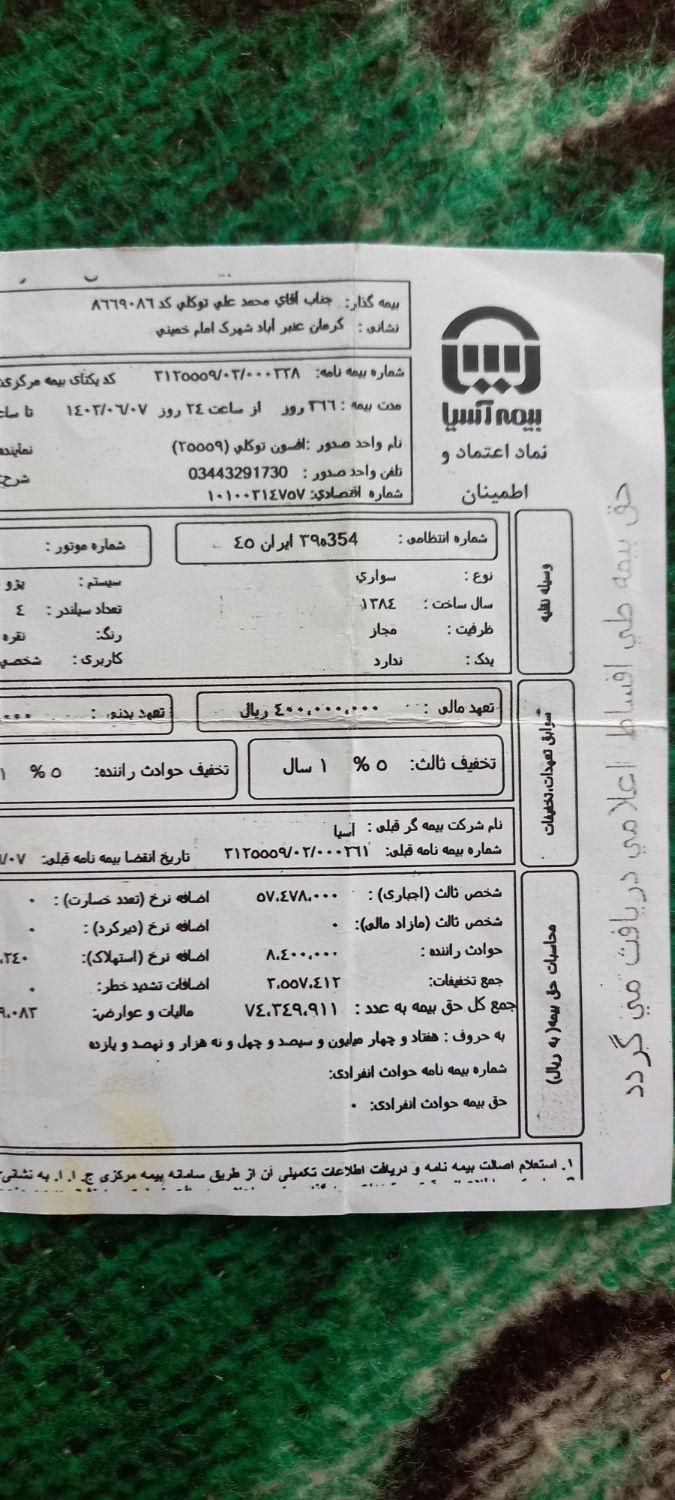 بیمه گذار: جناب آقاي محمد علي توکلي کد ۸۶۶۹۰۸۶
نشانی: کرمان عنبر آباد شهرک امام خمیني
بیمه آسیا
نماد اعتماد و
اطمینان
شماره بیمه نامه: ۳۱۲۵۵۵۹/۰۳/۰۰۰۲۳۸ کد یکتای بیمه مرکزی
مدت بیمه: ۳۶۶ روز از ساعت ۲۴ روز ۱۴۰۳/۰۶/۰۷ تا
نام واحد صدور: افسون توکلي (۲۵۵۵۹)
تلفن واحد صدور: 03443291730 شرح:
شماره اقتصادي: ۱۰۱۰۰۳۱٤۷۵۷
وسیله نقلیه
شماره انتظامی: 354ه۳۹ ایران ٤۵ شماره موتور:
نوع: سواري سیستم: پژو
سال ساخت: ۱۳۸٤ تعداد سیلندر: ٤
ظرفیت: مجاز رنگ: نقره
یدک: ندارد کاربری: شخصي
سوابق تعهدات، تخفیفات
تعهد مالی: ٤۰۰،۰۰۰،۰۰۰ ریال تعهد بدنی:
تخفیف ثالث: ۵ % ۱ سال تخفیف حوادث راننده: ۵ %
نام شرکت بیمه گر قبلی: آسیا
شماره بیمه نامه قبلی: ۳۱۲۵۵۵۹/۰۲/۰۰۰۲۶۱ تاریخ انقضا بیمه نامه قبلی:
محاسبات حق بیمه( به ریال)
شخص ثالث (اجباری): ۵۷،٤۷۸،۰۰۰ اضافه نرخ (تعدد خسارت): ۰
شخص ثالث (مازاد مالی): ۰ اضافه نرخ (دیرکرد): ۰
حوادث راننده: ۸،٤۰۰،۰۰۰ اضافه نرخ (استهلاک):
جمع تخفیفات: ۳،۵۵۷،٤۱۲ اضافات تشدید خطر: ۰
جمع کل حق بیمه به عدد: ۷٤،۳٤۹،۹۱۱ مالیات و عوارض:
به حروف: هفتاد و چهار میلیون و سیصد و چهل و نه هزار و نهصد و یازده
شماره بیمه نامه حوادث انفرادی:
حق بیمه حوادث انفرادی: ۰
۱. استعلام اصالت بیمه نامه و دریافت اطلاعات تکمیلی آن از طریق سامانه بیمه مرکزی ج. ا. ا. به نشانی
حق بیمه طي اقساط اعلامي دریافت مي گردد